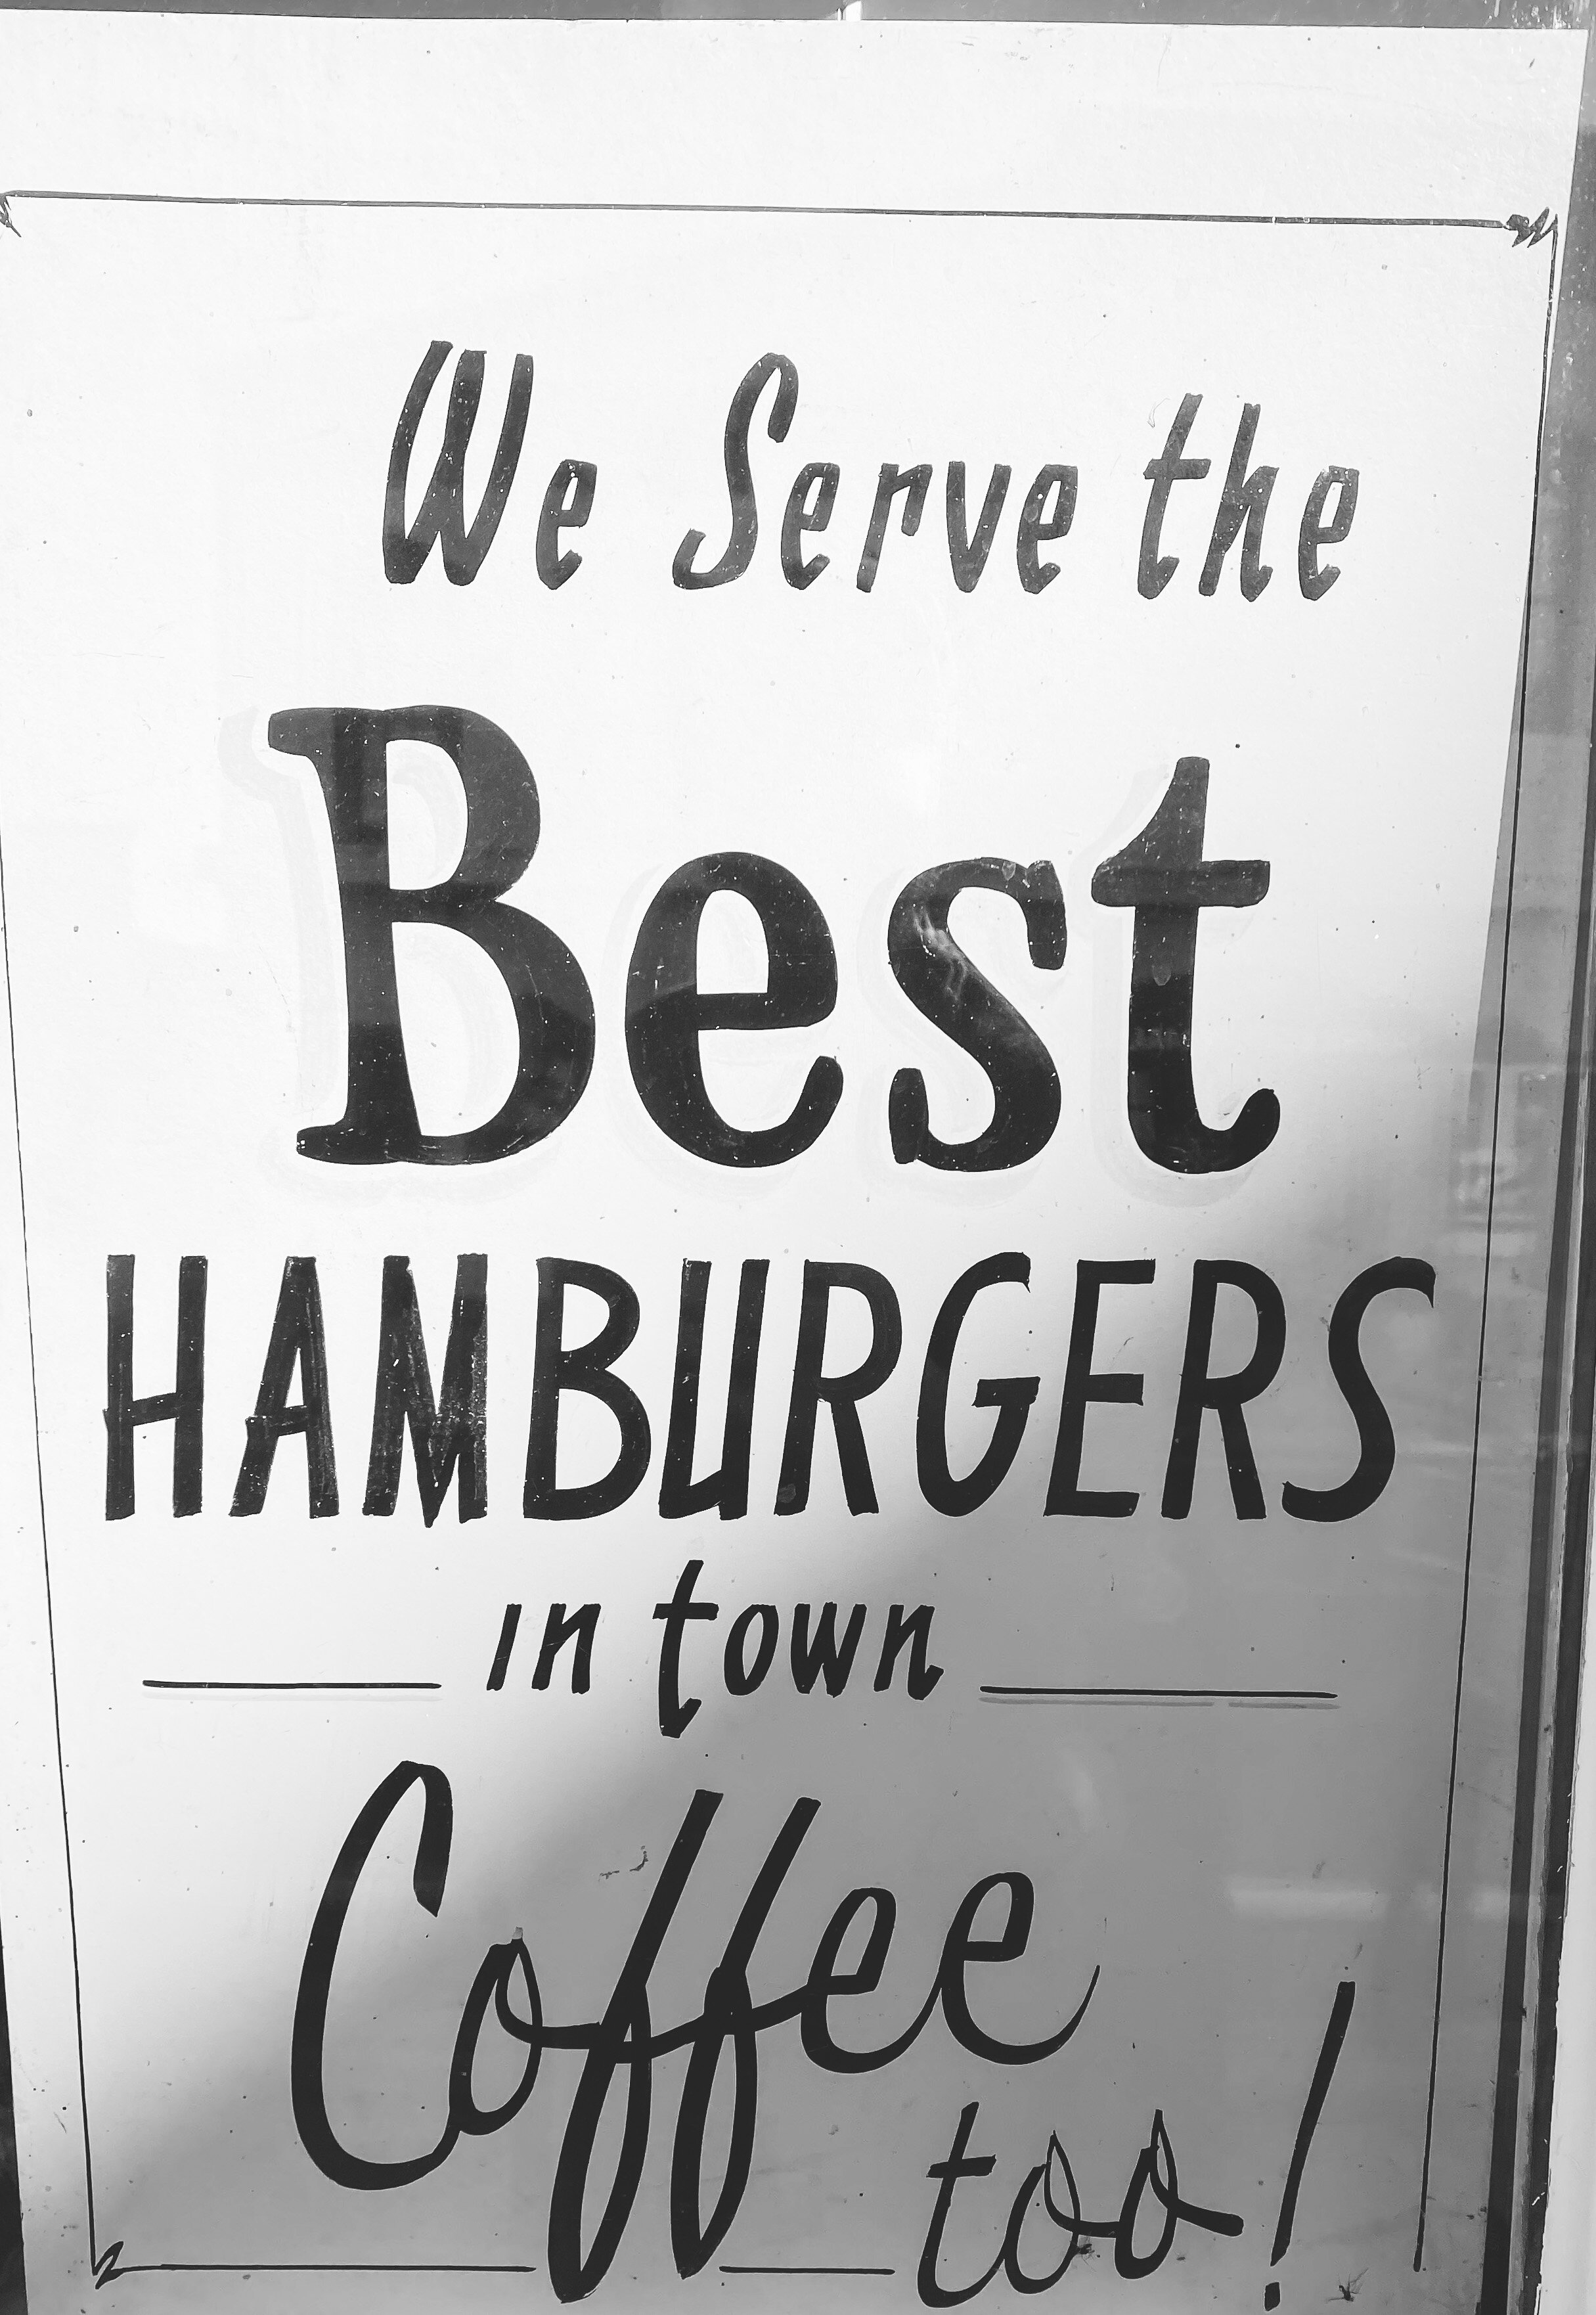 We Serve the
Best
HAMBURGERS
in town
Coffee
too!